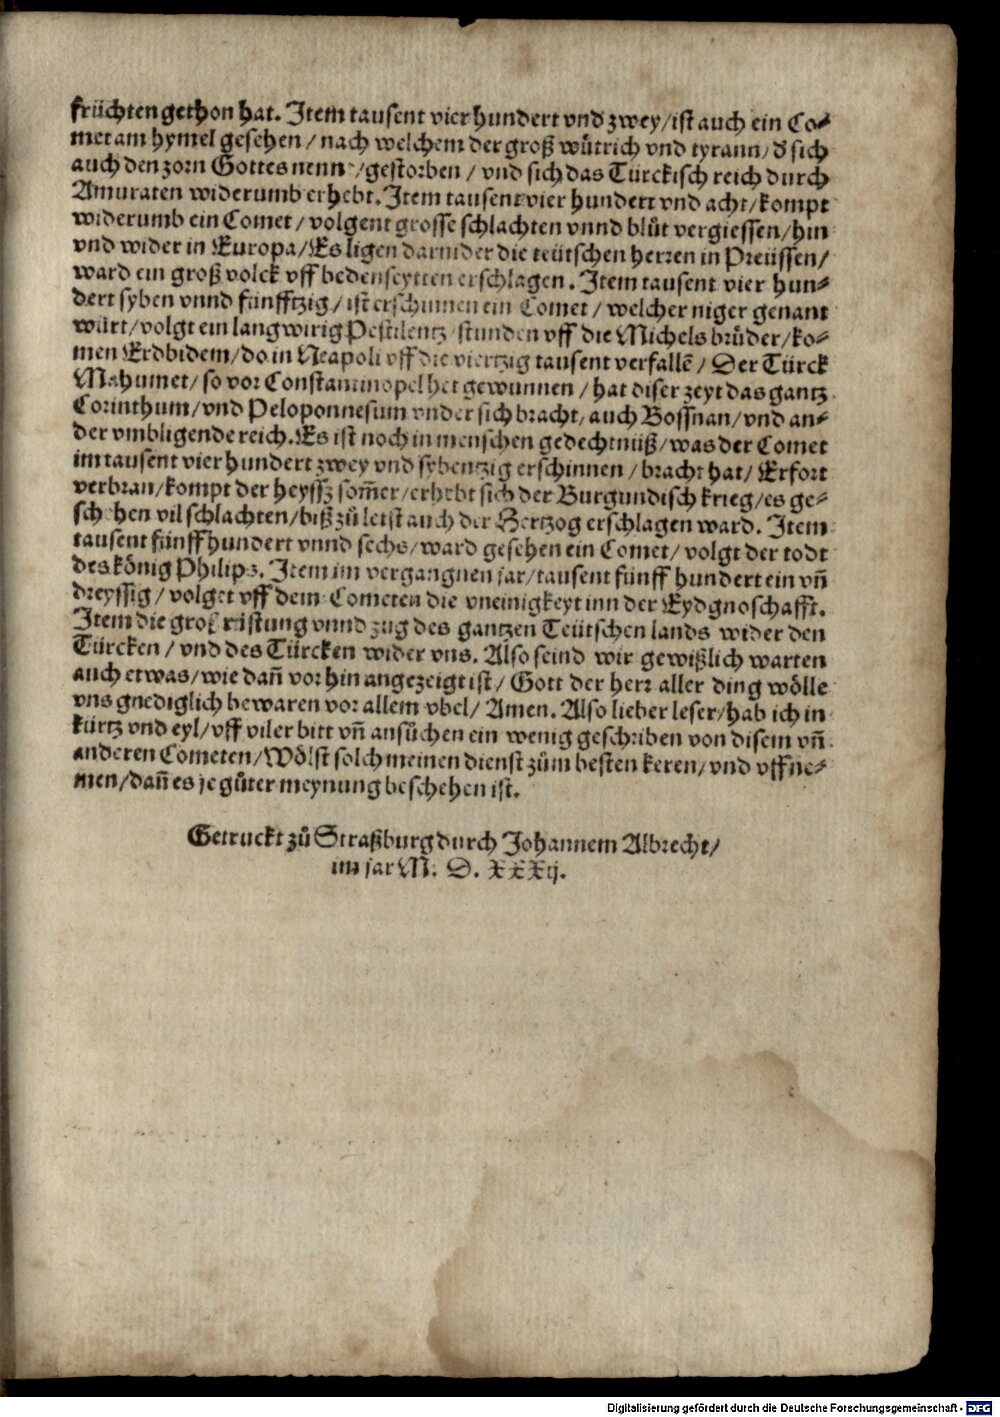 früchten gethon hat. Item tausent vier hundert vnd zwey/ist auch ein Co⸗
met am hymel gesehen / nach welchem der groß wůtrich vnd tyrann/ď sich
auch den zorn Gottes nenn /gestorben / vnd sich das Türckisch reich durch
Amuraten widerumb erhebt. Item tausent vier hundert vnd acht/kompt
widerumb ein Comet / volgent grosse schlachten vnnd blůt vergiessen/hin
vnd wider in Europa/Es ligen darnider die teütschen herren in Preüssen/
ward ein groß volck vff beden seytten erschlagen. Item tausent vier hun⸗
dert syben vnnd fünfftzig/ist erschinnen ein Comet/welcher niger genant
würt/volgt ein langwirig Pestilentz stunden vff die Michels brůder/ko⸗
men Erdbidem/do in Neapoli vff die viertzig tausent verfallē/Der Türck
Mahumet/so vor Constantinopel het gewunnen/hat diser zeyt das gantz
Corinthum/vnd Peloponnesum vnder sich bracht, auch Bossnan/vnd an⸗
der vmbligende reich. Es ist noch in menschen gedechtnüß/was der Comet
im tausent vier hundert zwey vnd sybentzig erschinnen/bracht hat/Erfort
verbran/kompt der heyssz som̄er/erhebt sich der Burgundisch krieg/es ge⸗
schehen vil schlachten/biß zů letst auch der Hertzog erschlagen ward. Item
tausent fünff hundert vnnd sechs/ward gesehen ein Comet/volgt der todt
des könig Philips. Item im vergangnen jar/tausent fünff hundert ein vn̄
dreyssig/volget vff dem Cometen die vneinigkeyt inn der Eydgnoschafft.
Item die groß rüstung vnnd zug des gantzen Teütschen lands wider den
Türcken/vnd des Türcken wider vns. Also seind wir gewißlich warten
auch etwas/wie dan̄ vorhin angezeigt ist/Gott der herr aller ding wölle
vns gnediglich bewaren vor allem vbel/Amen. Also lieber leser/hab ich in
kürtz vnd eyl/vff viler bitt vn̄ ansůchen ein wenig geschriben von disem vn̄
anderen Cometen/Wölst solch meinen dienst zům besten keren/vnd vffne⸗
men/dan̄ es je gůter meynung beschehen ist.
Getruckt zů Straßburg durch Johannem Albrecht/
im jar M. D. XXXij.
Digitalisierung gefördert durch die Deutsche Forschungsgemeinschaft - DFG